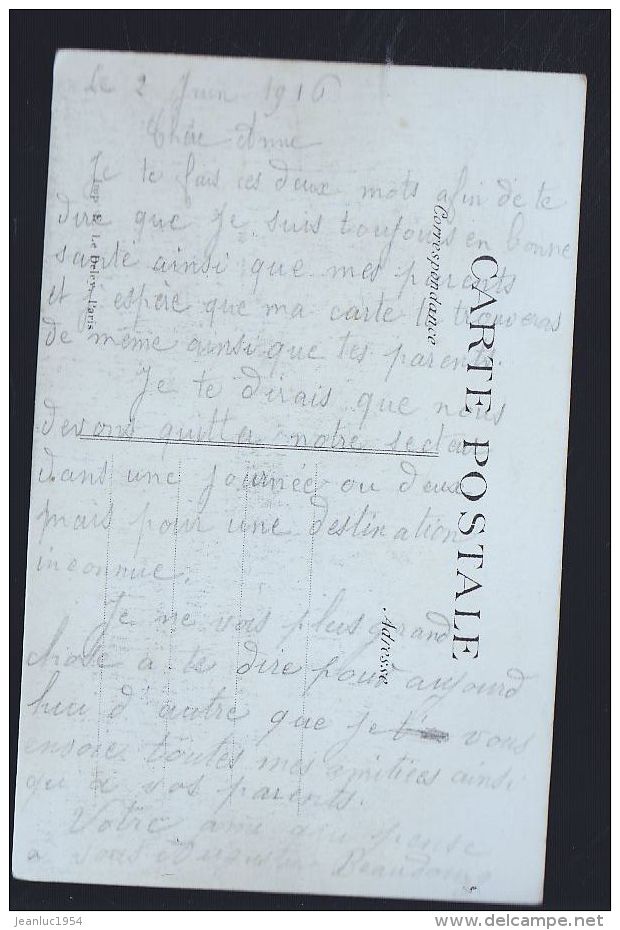 Le 2 Juin 1916
Chère Anne
Je te fais ces deux mots afin de te
dire que Je suis toujours en bonne
santé ainsi que mes parents
et j'espère que ma carte te trouveras
de même ainsi que tes parents.
Je te dirais que nous
devons quitter notre secteur
dans une journée ou deux
mais pour une destination
inconnue.
Je ne vois plus grand
chose a te dire pour aujourd
hui d'autre que je vous
envoie toutes mes amitiées ainsi
qu'a vos parents.
Votre ami qui pense
a vous
CARTE POSTALE
Correspondance
Adresse
Imp. E. Le Deley, Paris
jeanluc1954
delcampe.net